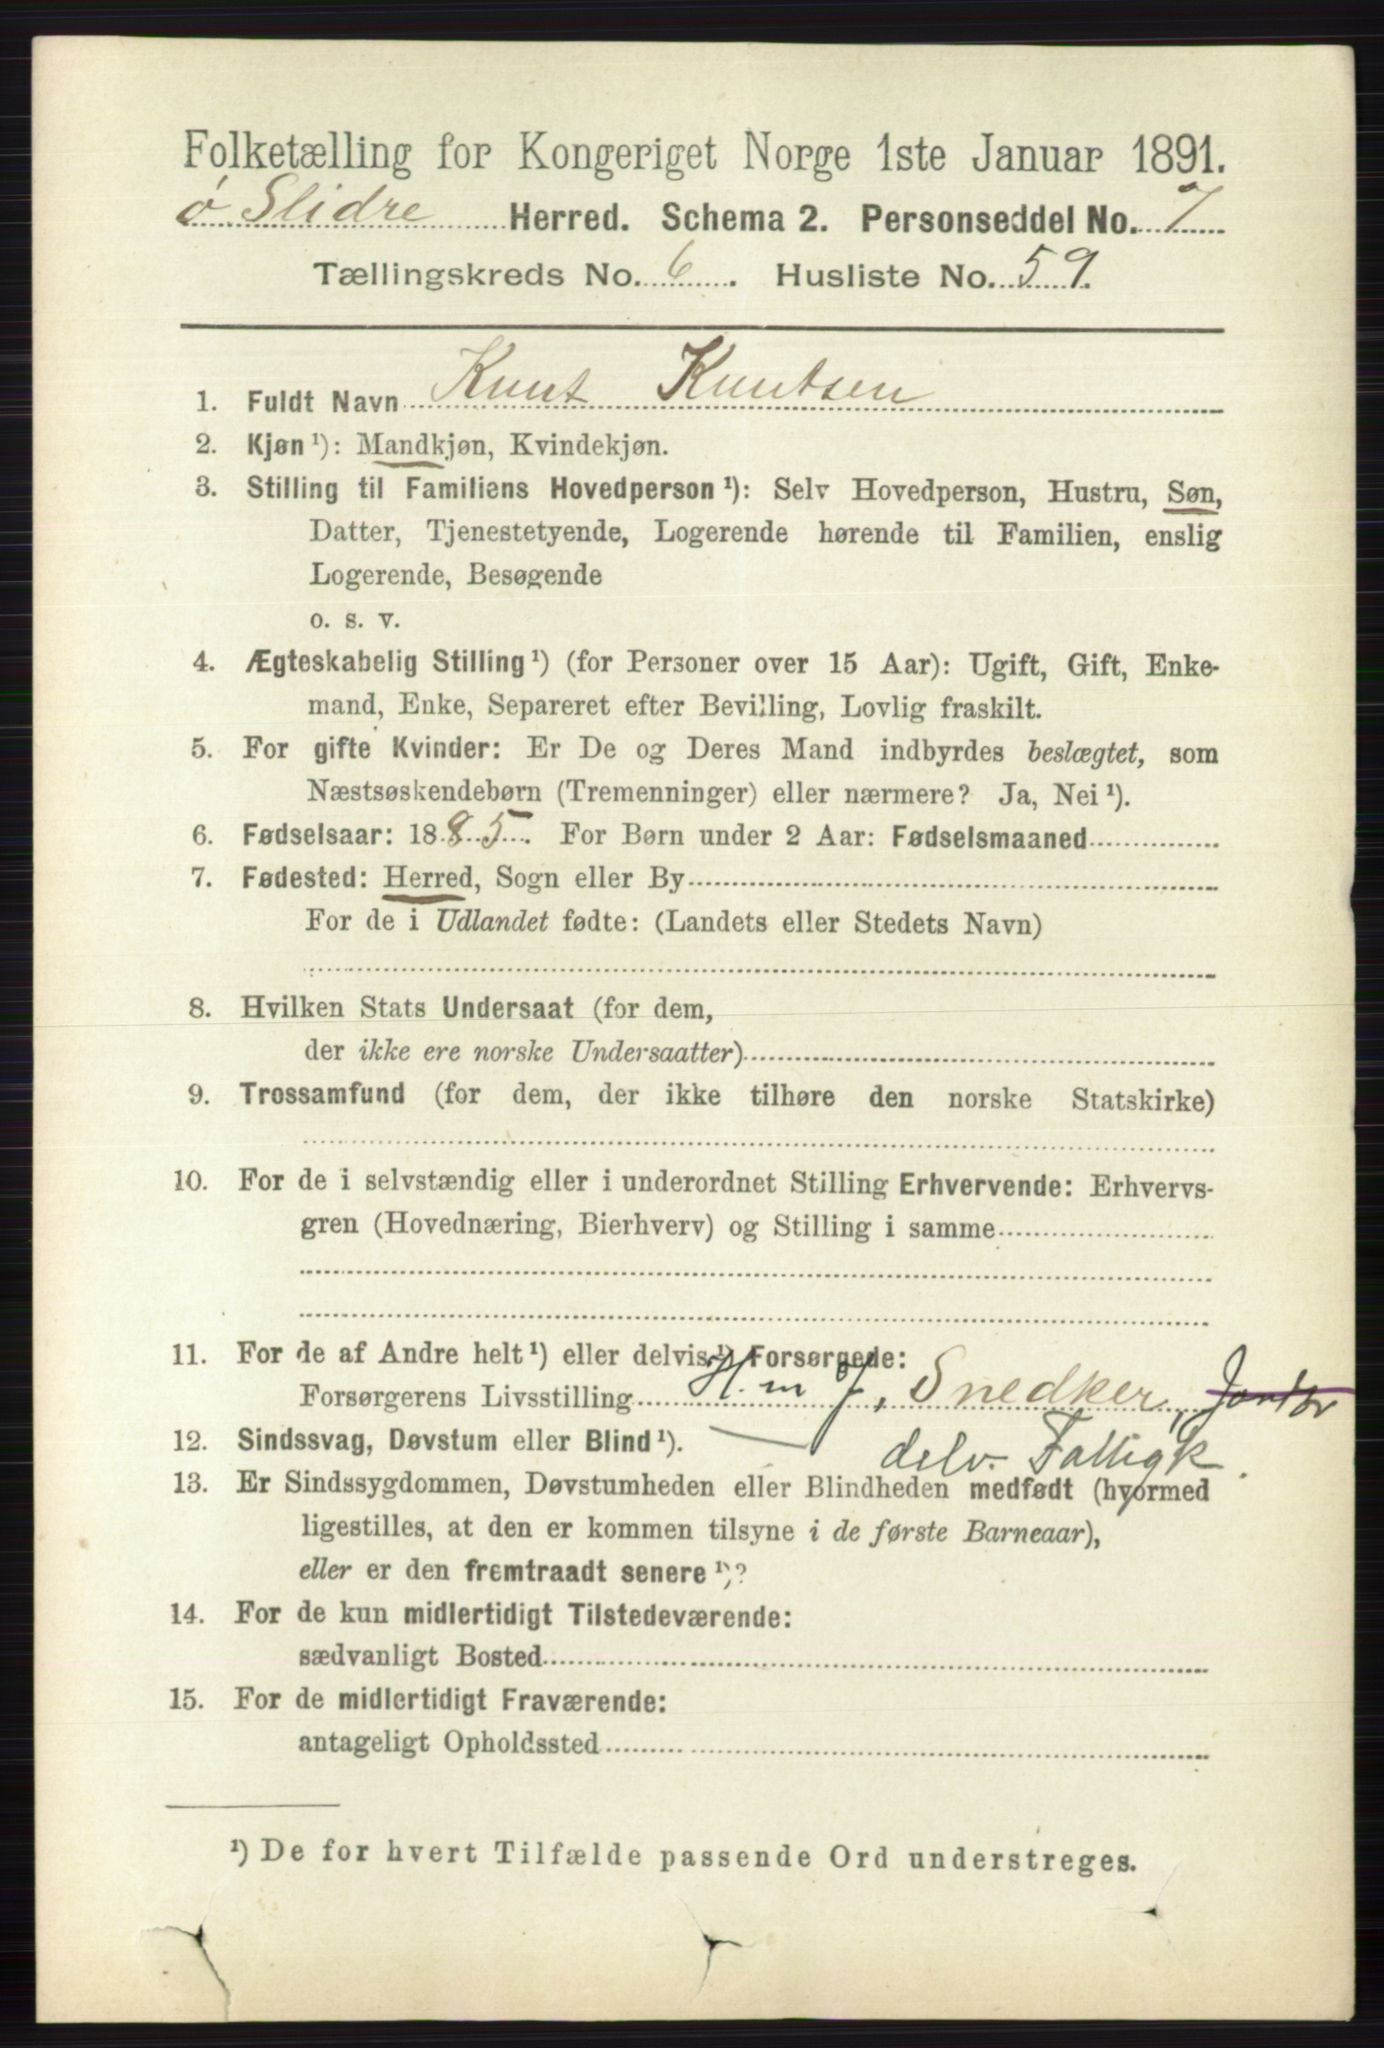 Folketælling for Kongeriget Norge 1ste Januar 1891.
Ø Slidre Herred. Schema 2. Personseddel No. 7
Tællingskreds No. 6. Husliste No. 59.
1. Fuldt Navn Knut Knutsen
2. Kjøn ¹): Mandkjøn, Kvindekjøn.
3. Stilling til Familiens Hovedperson ¹): Selv Hovedperson, Hustru, Søn,
Datter, Tjenestetyende, Logerende hørende til Familien, enslig
Logerende, Besøgende
o. s. v.
4. Ægteskabelig Stilling ¹) (for Personer over 15 Aar): Ugift, Gift, Enke-
mand, Enke, Separeret efter Bevilling, Lovlig fraskilt.
5. For gifte Kvinder: Er De og Deres Mand indbyrdes beslægtet, som
Næstsøskendebørn (Tremenninger) eller nærmere? Ja, Nei ¹).
6. Fødselsaar: 1885. For Børn under 2 Aar: Fødselsmaaned
7. Fødested: Herred, Sogn eller By
For de i Udlandet fødte: (Landets eller Stedets Navn)
8. Hvilken Stats Undersaat (for dem,
der ikke ere norske Undersaatter)
9. Trossamfund (for dem, der ikke tilhøre den norske Statskirke)
10. For de i selvstændig eller i underordnet Stilling Erhvervende: Erhvervs-
gren (Hovednæring, Bierhverv) og Stilling i samme
11. For de af Andre helt ¹) eller delvis ¹) Forsørgede:
Forsørgerens Livsstilling H. m J, Snedker,
delv. Fattigk.
12. Sindssvag, Døvstum eller Blind ¹).
13. Er Sindssygdommen, Døvstumheden eller Blindheden medfødt (hvormed
ligestilles, at den er kommen tilsyne i de første Barneaar),
eller er den fremtraadt senere ¹)?
14. For de kun midlertidigt Tilstedeværende:
sædvanligt Bosted
15. For de midlertidigt Fraværende:
antageligt Opholdssted
¹) De for hvert Tilfælde passende Ord understreges.